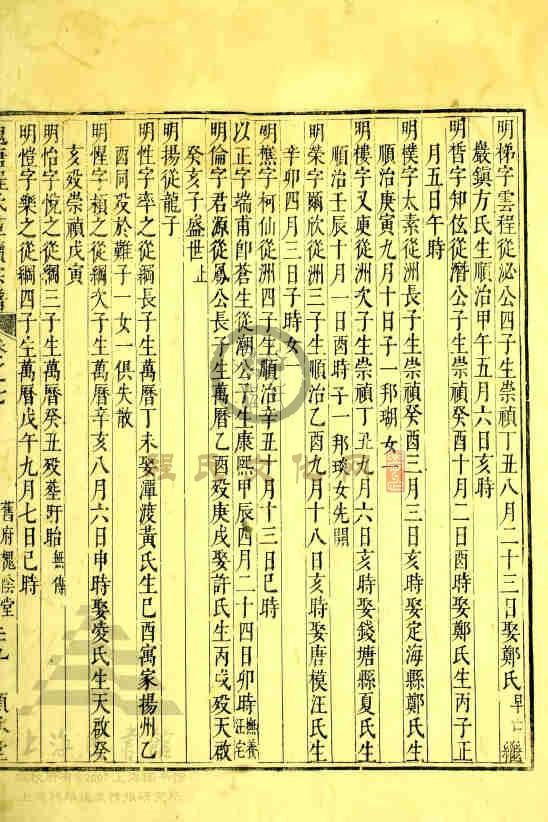 明梯字雲程從泌公四子生崇禎丁丑八月二十三日娶鄭氏早亡繼
巖鎮方氏生順治甲午五月六日亥時
明皙字知伭從潛公子生崇禎癸酉十月二日酉時娶鄭氏生丙子正
月五日午時
明樸字太素從洲長子生崇禎癸酉三月三日亥時娶定海縣鄭氏生
順治庚寅九月十日子一邦瑚女一
明樓字又庾從洲次子生崇禎丁丑九月六日亥時娶錢塘縣夏氏生
順治壬辰十月一日酉時子一邦琰女先開
明榮字爾欣從洲三子生順治乙酉九月十八日亥時娶唐模汪氏生
辛卯四月三日子時女一
明樵字柯仙從洲四子生順治辛丑十月十三日巳時
以正字端甫卽蒼生從潮公子生康熙甲辰四月二十四日卯時無養汪宅
明倫字君源從鳳公長子生萬曆乙酉歿庚戌娶許氏生丙戌歿天啟
癸亥子盛世止
明揚從龍子
明性字率之從綱長子生萬曆丁未娶潭渡黃氏生己酉寓家揚州乙
酉同歿於難子一女一俱失散
明惺字頛之從綱次子生萬曆辛亥八月六日申時娶凌氏生天啟癸
亥歿崇禎戊寅
明怡字悅之從綱三子生萬曆癸丑歿塟盱眙無傳
明愷字樂之從綱四子生萬曆戊午九月七日巳時
舊府槐陰堂
程氏文化网